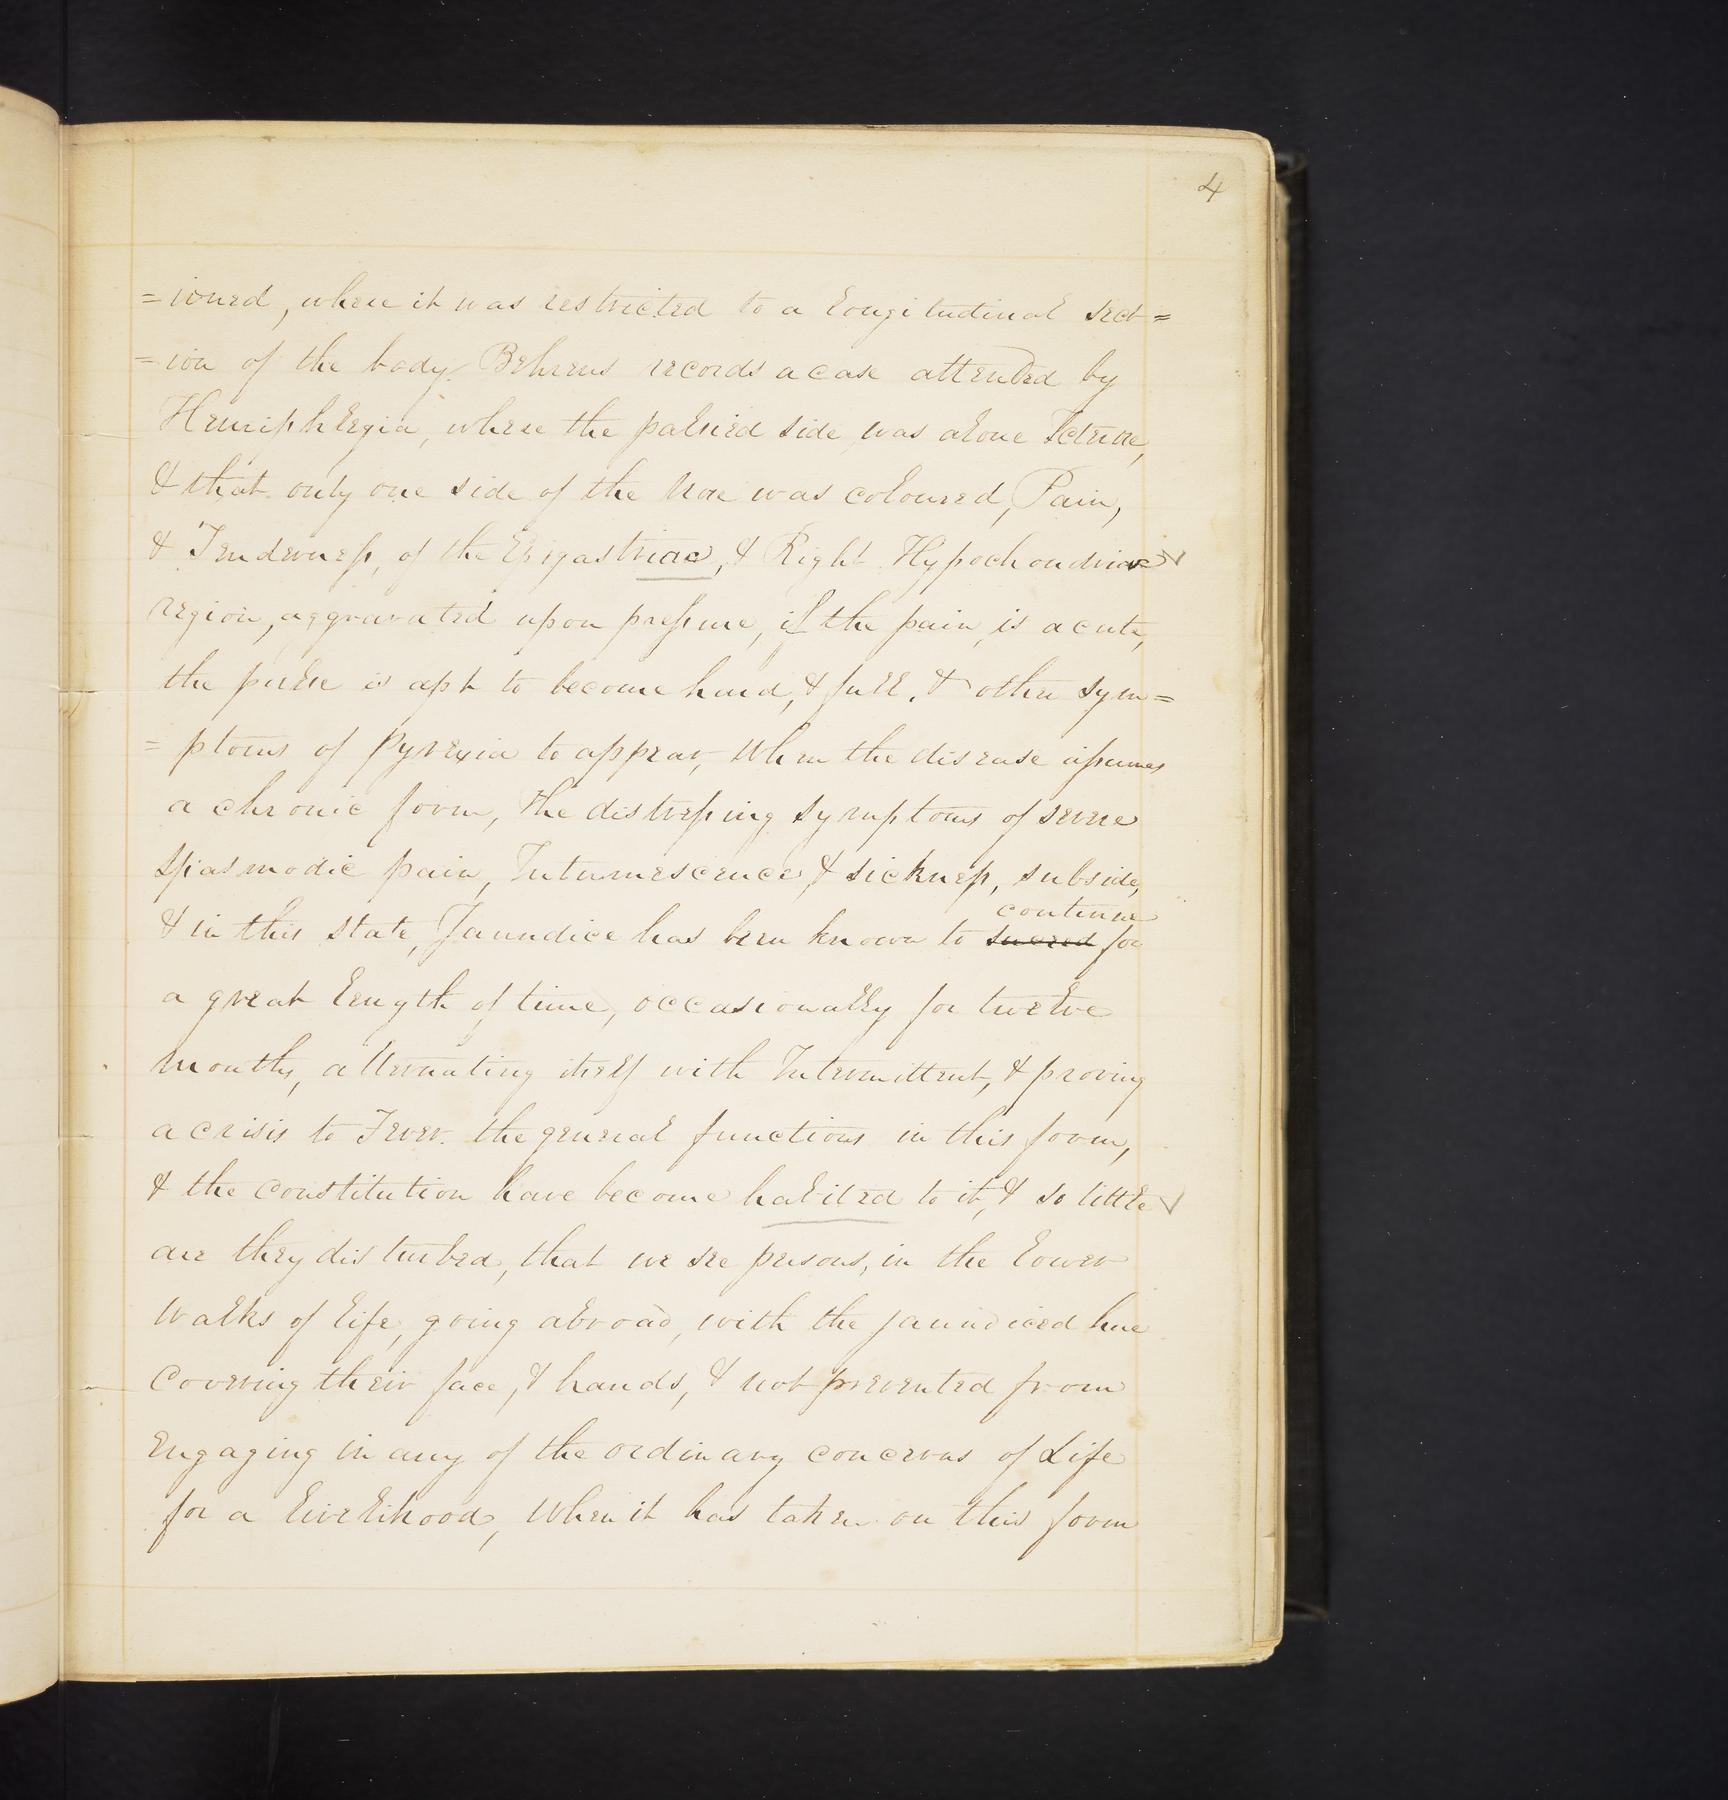 4
=ioned, where it was restricted to a longitudinal sect=
=ion of the body. Behrens records a case attended by
Hemiphlegia, where the palsied side, was alone Icteric,
& that only one side of the was coloured, Pain,
& Tenderness, of the Epigastriac, & Right Hypochondriac
region, aggravated upon pressure, if the pain, is acute,
the pulse is apt to become hard, & full, & other sym=
=ptoms of Pyrexia to appear, When the disease assumes
a chronic form, the distressing symptoms of severe
spasmodic pain, Intumescence & sickness, subside,
continue
& in this state, Jaundice has been known to for
a great length of time, occasionally for twelve
months, alternating itself with Intermittent, & proving
a crisis to Fever. the general functions in this form,
& the constitution have become habited to it, & so little
are they disturbed, that we see persons, in the lower
walks of life, going abroad, with the jaundiced hue
covering their face, & hands, & not prevented from
Engaging in any of the ordinary concerns of Life
for a livelihood, When it has taken on this form